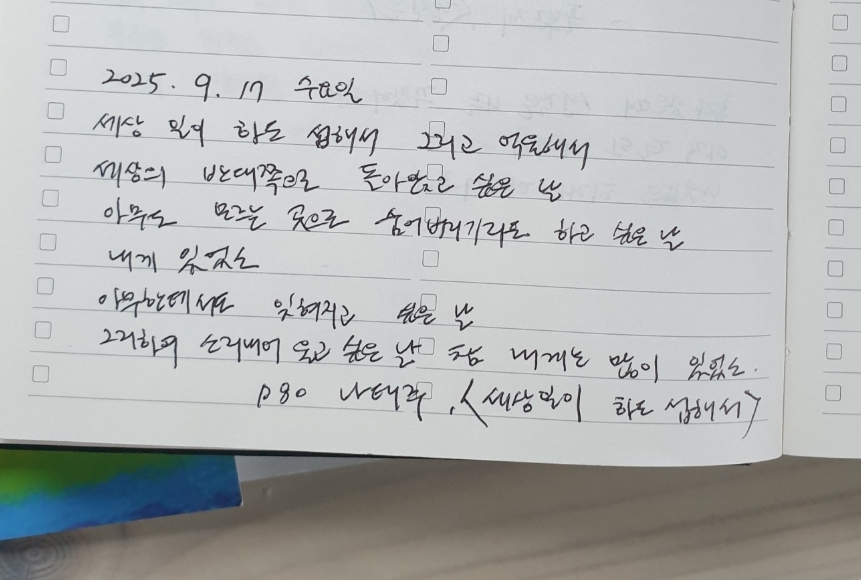 2025. 9. 17 수요일
세상 일이 하도 섭해서 그리고 억울해서
세상의 반대쪽으로 돌아앉고 싶은 날
아무도 모르는 곳으로 숨어버리기라도 하고 싶은 날
내게 있었소
아무한테서도 잊혀지고 싶은 날
그리하여 소리내어 울고 싶은 날 참 내게는 많이 있었소.
p80 나태주, <세상일이 하도 섭해서>